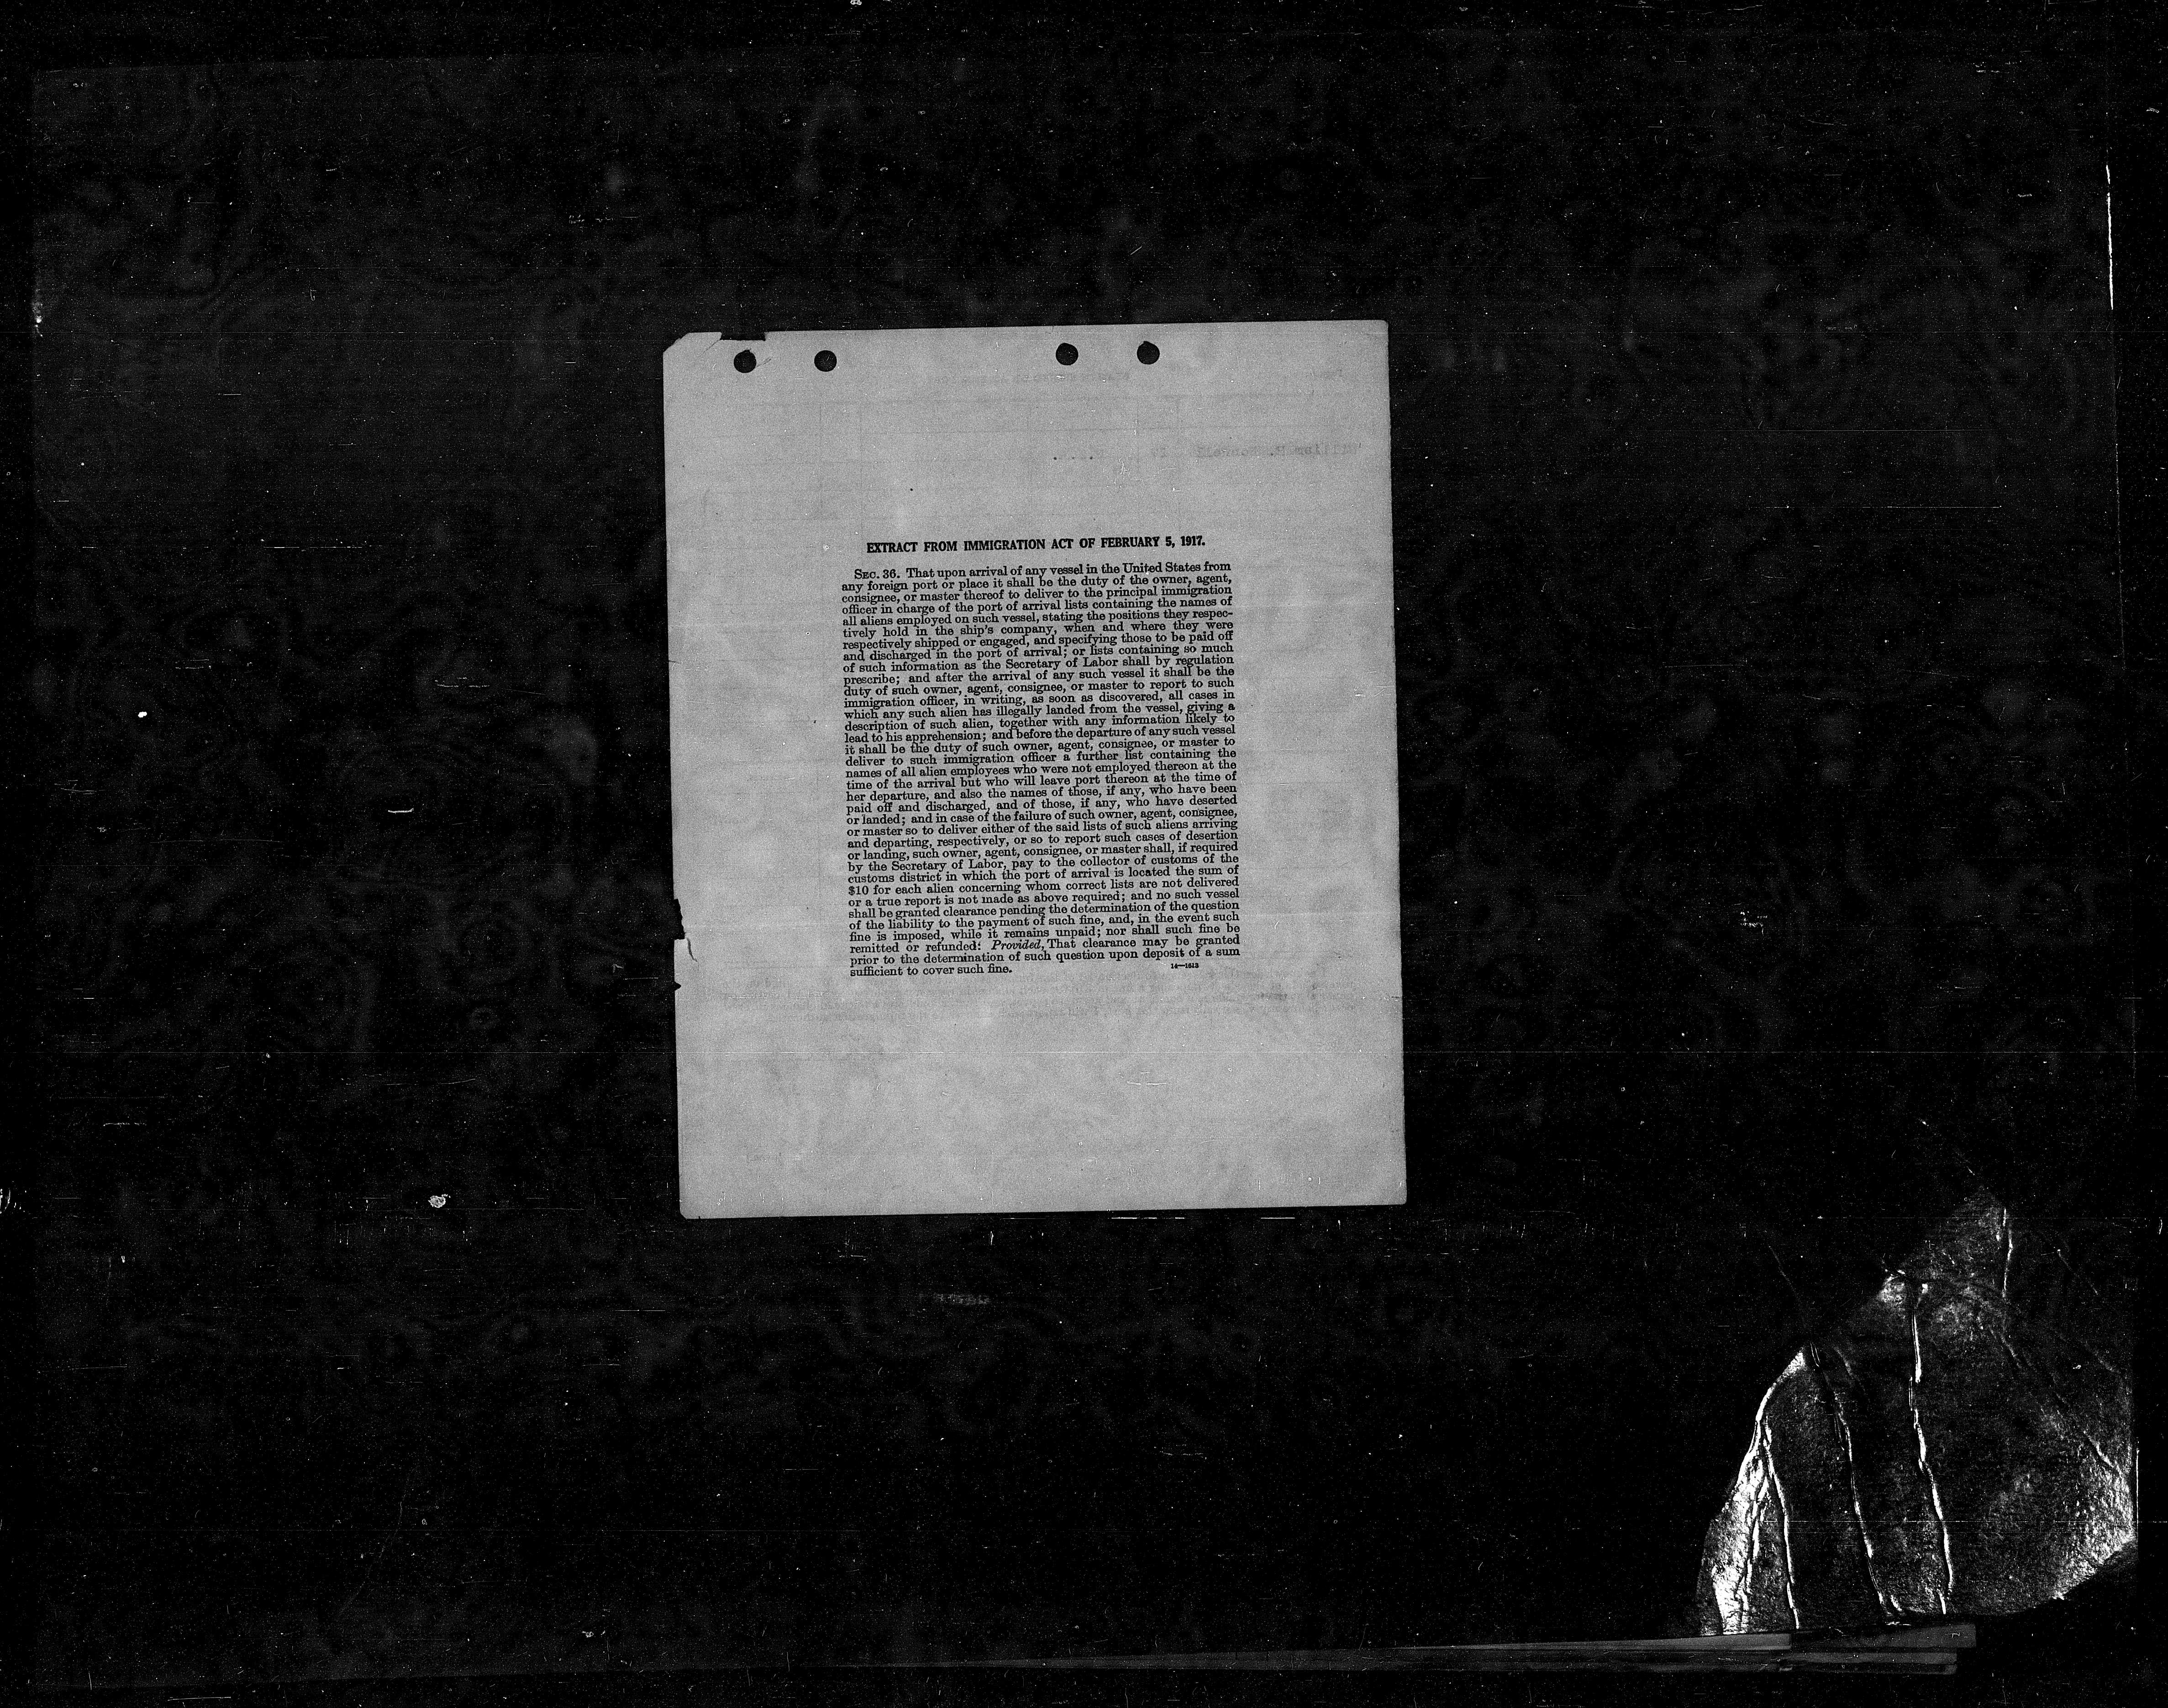 EXTRACT FROM IMMIGRATION ACT OF FEBRUARY 5, 1917.
SEC. 36. That upon arrival of any vessel in the United States from
any foreign port or place it shall be the duty of the owner, agent,
consignee, or master thereof to deliver to the principal immigration
officer in charge of the port of arrival lists containing the names of
all aliens employed on such vessel, stating the positions they respec-
tively hold in the ship's company, when and where they were
respectively shipped or engaged, and specifying those to be paid off
and discharged in the port of arrival; or lists containing so much
of such information as the Secretary of Labor shall by regulation
prescribe; and after the arrival of any such vessel it shall be the
duty of such owner, agent, consignee, or master to report to such
immigration officer, in writing, as soon as discovered, all cases in
which any such alien has illegally landed from the vessel, giving a
description of such alien, together with any information likely to
lead to his apprehension; and before the departure of any such vessel
it shall be the duty of such owner, agent, consignee, or master to
deliver to such immigration officer a further list containing the
names of all alien employees who were not employed thereon at the
time of the arrival but who will leave port thereon at the time of
her departure, and also the names of those, if any, who have been
paid off and discharged, and of those, if any, who have deserted
or landed; and in case of the failure of such owner, agent, consignee,
or master so to deliver either of the said lists of such aliens arriving
and departing, respectively, or so to report such cases of desertion
or landing, such owner, agent, consignee, or master shall, if required
by the Secretary of Labor, pay to the collector of customs of the
customs district in which the port of arrival is located the sum of
$10 for each alien concerning whom correct lists are not delivered
or a true report is not made as above required; and no such vessel
shall be granted clearance pending the determination of the question
of the liability to the payment of such fine, and, in the event such
fine is imposed, while it remains unpaid; nor shall such fine be
remitted or refunded: Provided, That clearance may be granted
prior to the determination of such question upon deposit of a sum
sufficient to cover such fine. 14—1613